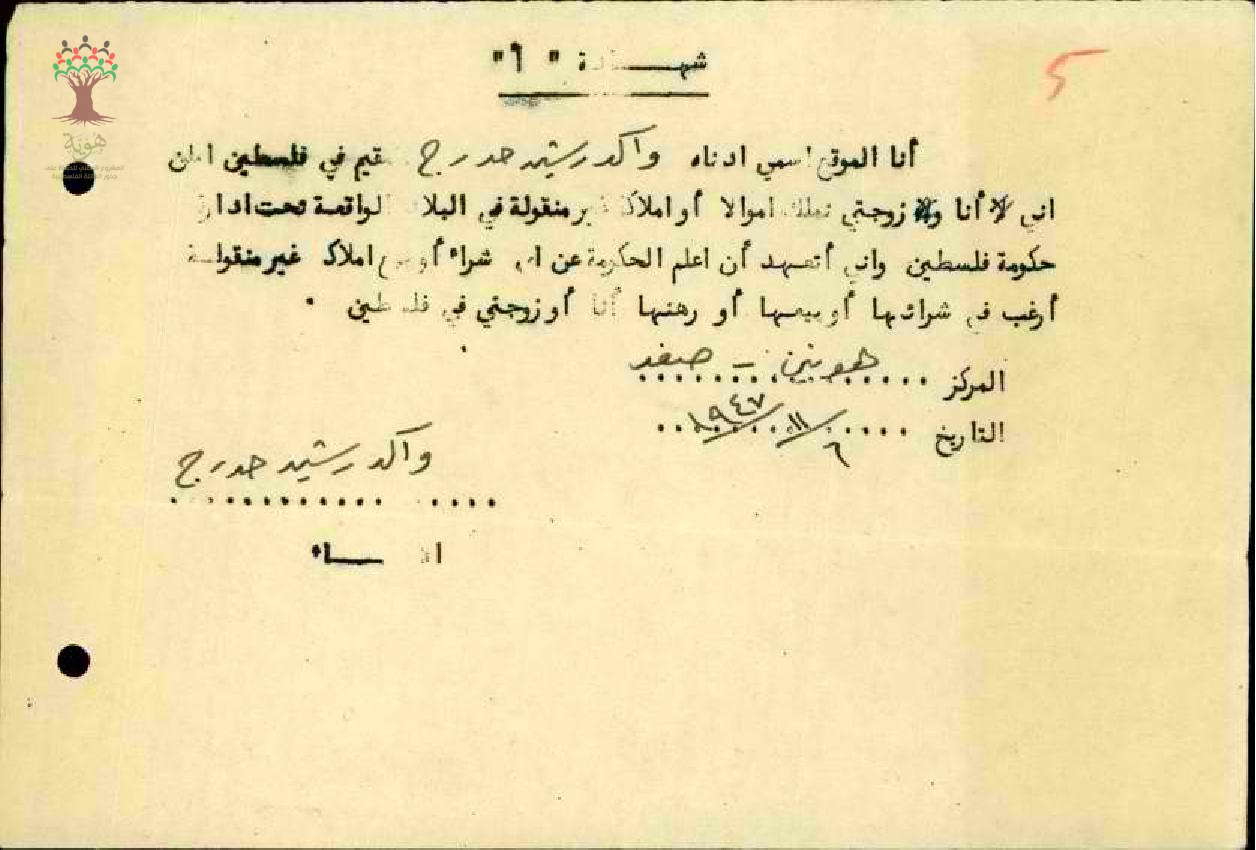 شهـــادة " ٦ "
5
أنا الموقع اسمي ادناه واكد رشيد حدرج مقيم في فلسطين اعلن
اني لا أنا ولا زوجتي نملك اموالا أو املاك غير منقولة في البلاد الواقعة تحت ادارة
حكومة فلسطين واني أتعهد أن اعلم الحكومة عن اى شراء أو بيع املاك غير منقولة
أرغب في شرائها أو بيعها أو رهنها أنا أو زوجتي في فلسطين .
المركز هونين - صفد
التاريخ ٦/١١/١٩٤٧
واكد رشيد حدرج
الامضـــاء
هُوِيَّة